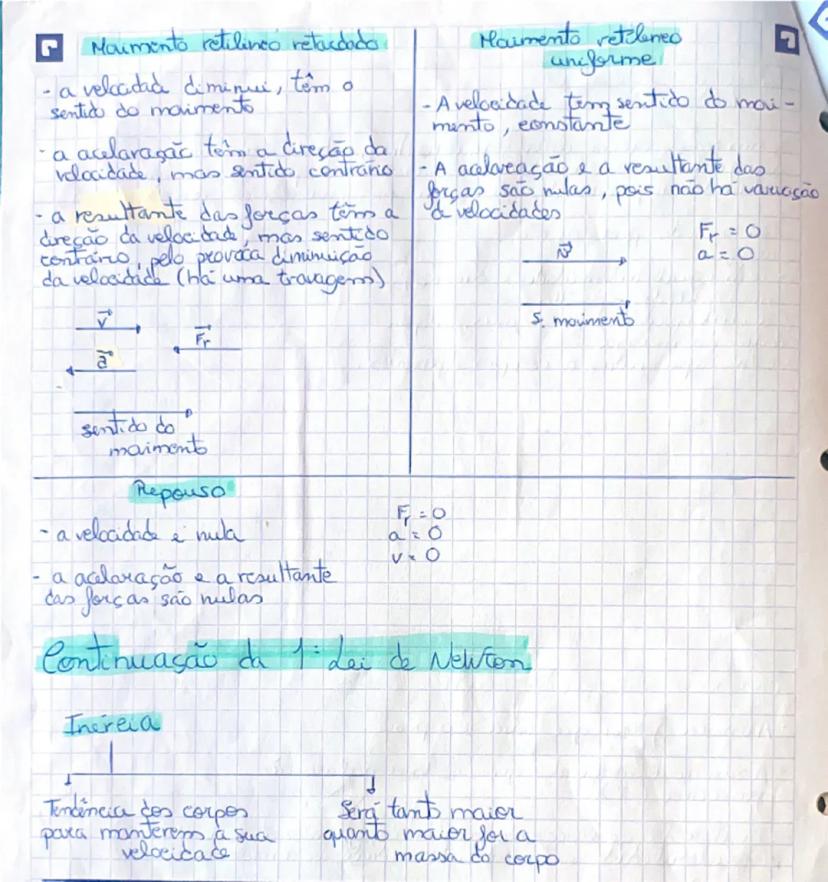 Movimento retilíneo retardado
- a velocidade diminui, têm o
sentido do movimento
- a acelaração têm a direção da
velocidade, mas sentido contrário
- a resultante das forças têm a
direção da velocidade, mas sentido
contrário, pelo provoca diminuição
da velocidade (há uma travagem)
v
Fr
a
sentido do
movimento
Movimento retilíneo
uniforme
- A velocidade tem sentido do movi-
mento, constante
- A acelaração e a resultante das
forças são nulas, pois não há variação
de velocidades
Fr = 0
a = 0
v
s. movimento
Repouso
- a velocidade é nula
- a acelaração e a resultante
das forças são nulas
Fr = 0
a = 0
v = 0
Continuação da 1ª Lei de Newton
Inércia
Tendência dos corpos
para manterem a sua
velocidade
Será tanto maior
quanto maior for a
massa do corpo